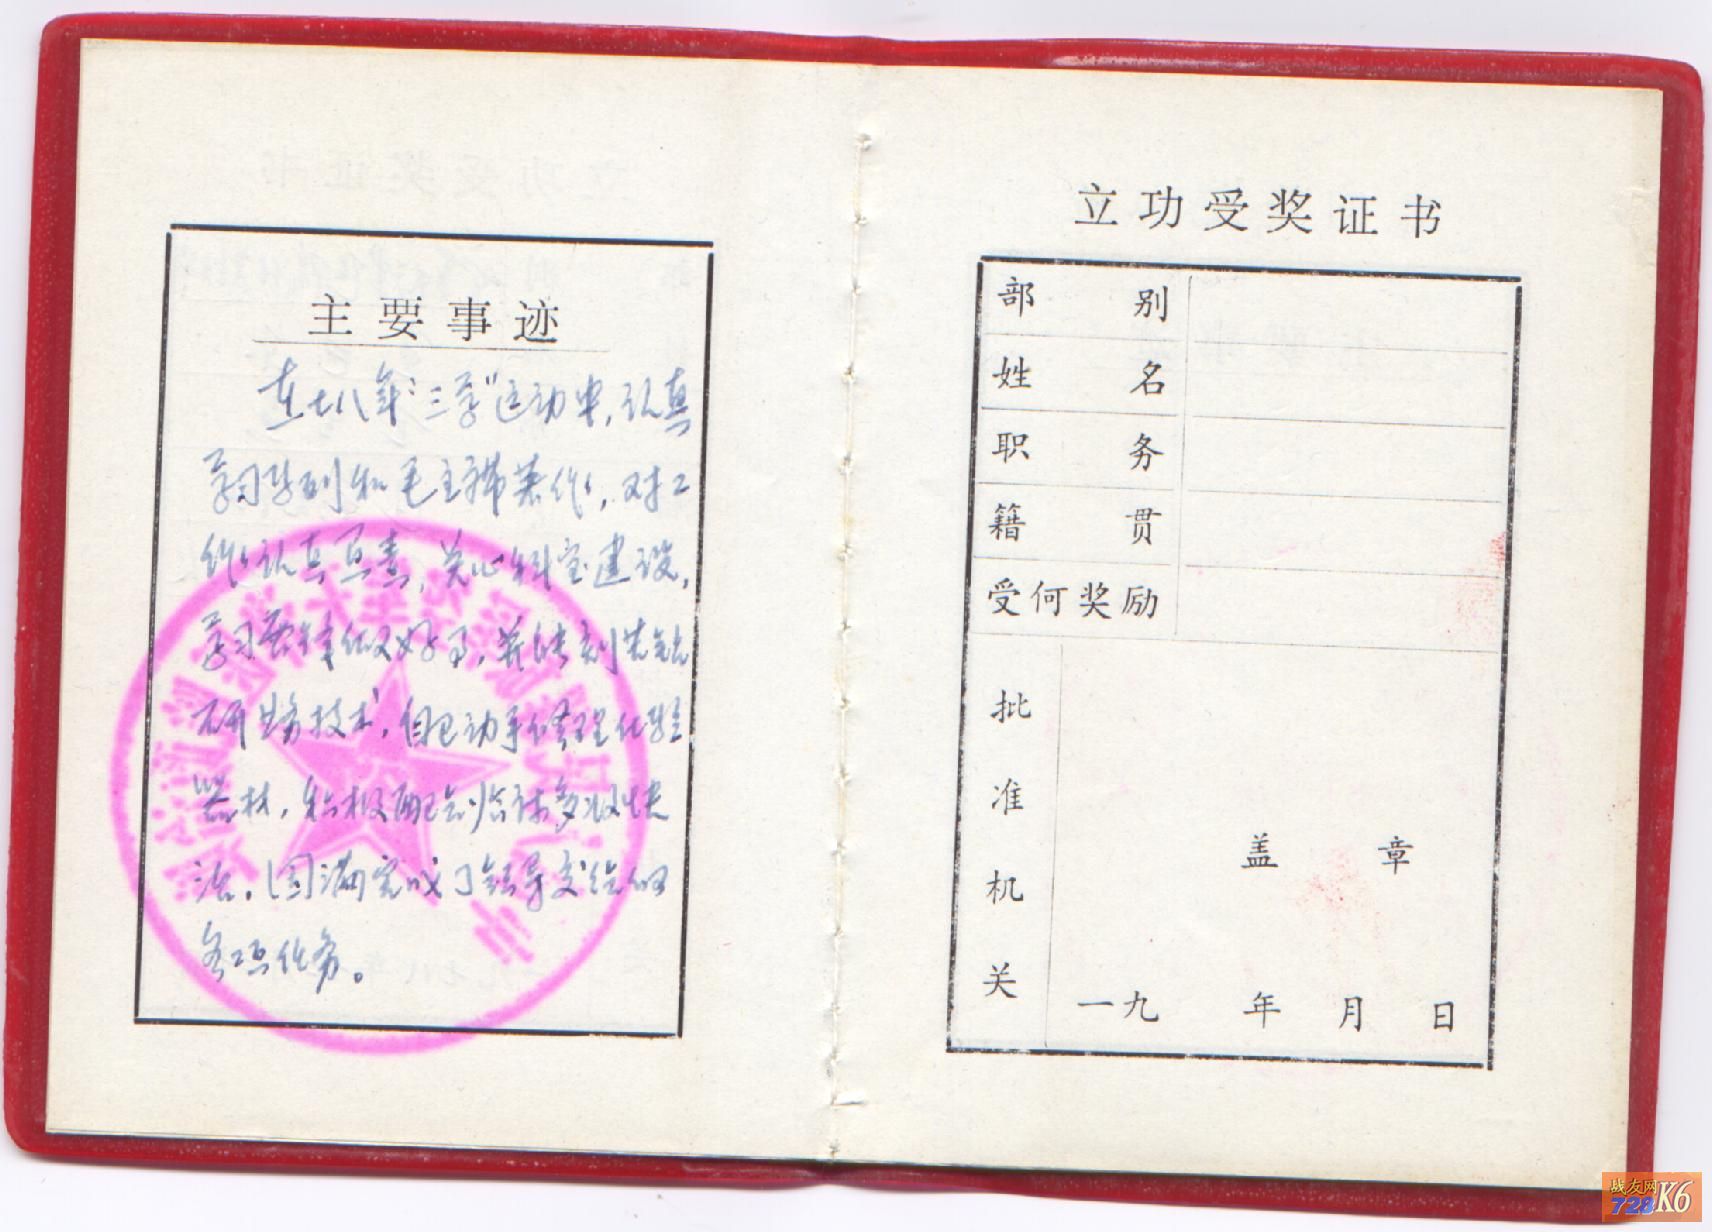 主要事迹
在七八年“三学”运动中，认真
学习马列和毛主席著作，对工
作认真负责，关心科室建设，
学习雷锋做好事，并能刻苦钻
研业务技术，自己动手修理化验
器材，积极配合临床多收快
治，圆满完成了领导交给的
各项任务。
立功受奖证书
部别
姓名
职务
籍贯
受何奖励
批准机关
盖章
一九 年 月 日
战友网
728K6